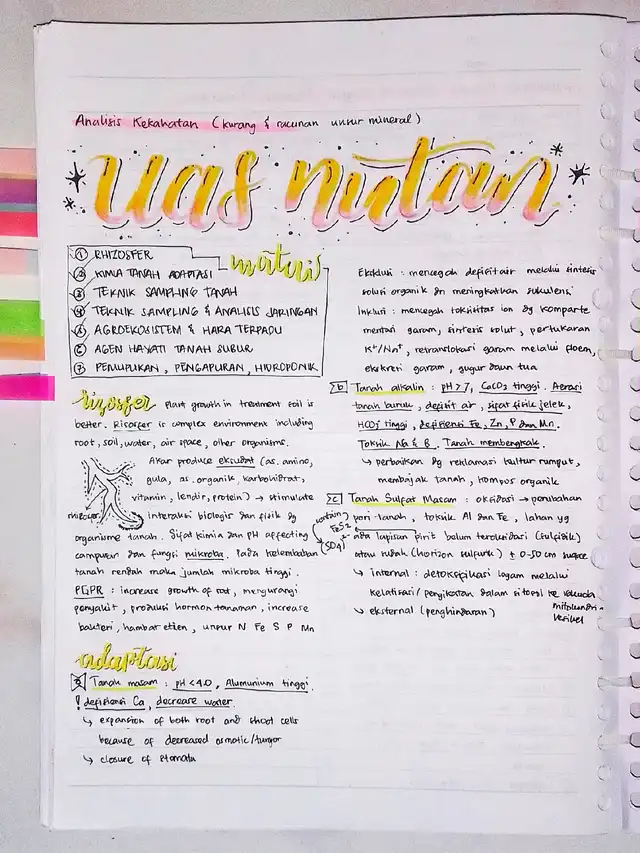 Analisis Kekahatan (kurang & racunan unsur mineral)
uas nutan
materi
1 RHIZOSFER
2 KIMIA TANAH ADAPTASI
3 TEKNIK SAMPLING TANAH
4 TEKNIK SAMPLING & ANALISIS JARINGAN
5 AGROEKOSISTEM & HARA TERPADU
6 AGEN HAYATI TANAH SUBUR
7 PEMUPUKAN, PENGAPURAN, HIDROPONIK
rizosfer Plant growth in treatment soil is
better. Rizosfer is complex environment including
root, soil, water, air space, other organisms.
Akar produce eksudat (as. amino,
gula, as. organik, karbohidrat,
vitamin, lendir, protein) → stimulate
rhizosfer
interaksi biologis dan fisik dg
organisme tanah. Sifat kimia dan pH affecting
campuran dan fungsi mikroba. Pada kelembaban
tanah rendah maka jumlah mikroba tinggi.
PGPR : increase growth of root, mengurangi
penyakit, produksi hormon tanaman, increase
bakteri, hambat etilen, unsur N Fe S P Mn
adaptasi
a Tanah masam : pH < 4.0, Alumunium tinggi.
! defisiensi Ca, decrease water.
↳ expansion of both root and shoot cells
because of decreased osmotic/turgor
↳ closure of stomata
Eksklusi : mencegah deficit air melalui sintesis
solusi organik dn meningkatkan sukulensi
Inklusi : mencegah toksisitas ion dg komparte
mentasi garam, sintesis solut, pertukaran
K+/Na+, retranslokasi garam melalui floem,
ekskresi garam, gugur daun tua
b Tanah alkalin : pH > 7, CaCO3 tinggi. Aerasi
tanah buruk, deficit air, sifat fisik jelek,
HCO3 tinggi, defisiensi Fe, Zn, P dan Mn.
Toksik Na & B. Tanah membengkak.
↳ perbaikan dg reklamasi kultur rumput,
membajak tanah, kompos organik
c Tanah Sulfat Masam : oksidasi → perubahan
pori tanah, toksik Al dan Fe, lahan yg
contain
FeS2
(SO4) 2-
ada lapisan pirit belum teroksidasi (sulfidik)
atau sudah (horizon sulfurik) ± 0-50 cm surface
↳ internal : detoksifikasi logam melalui
kelatisasi/pengikatan dalam sitosol ke vakuola
mitokondria
vesikel
↳ eksternal (penghindaran)